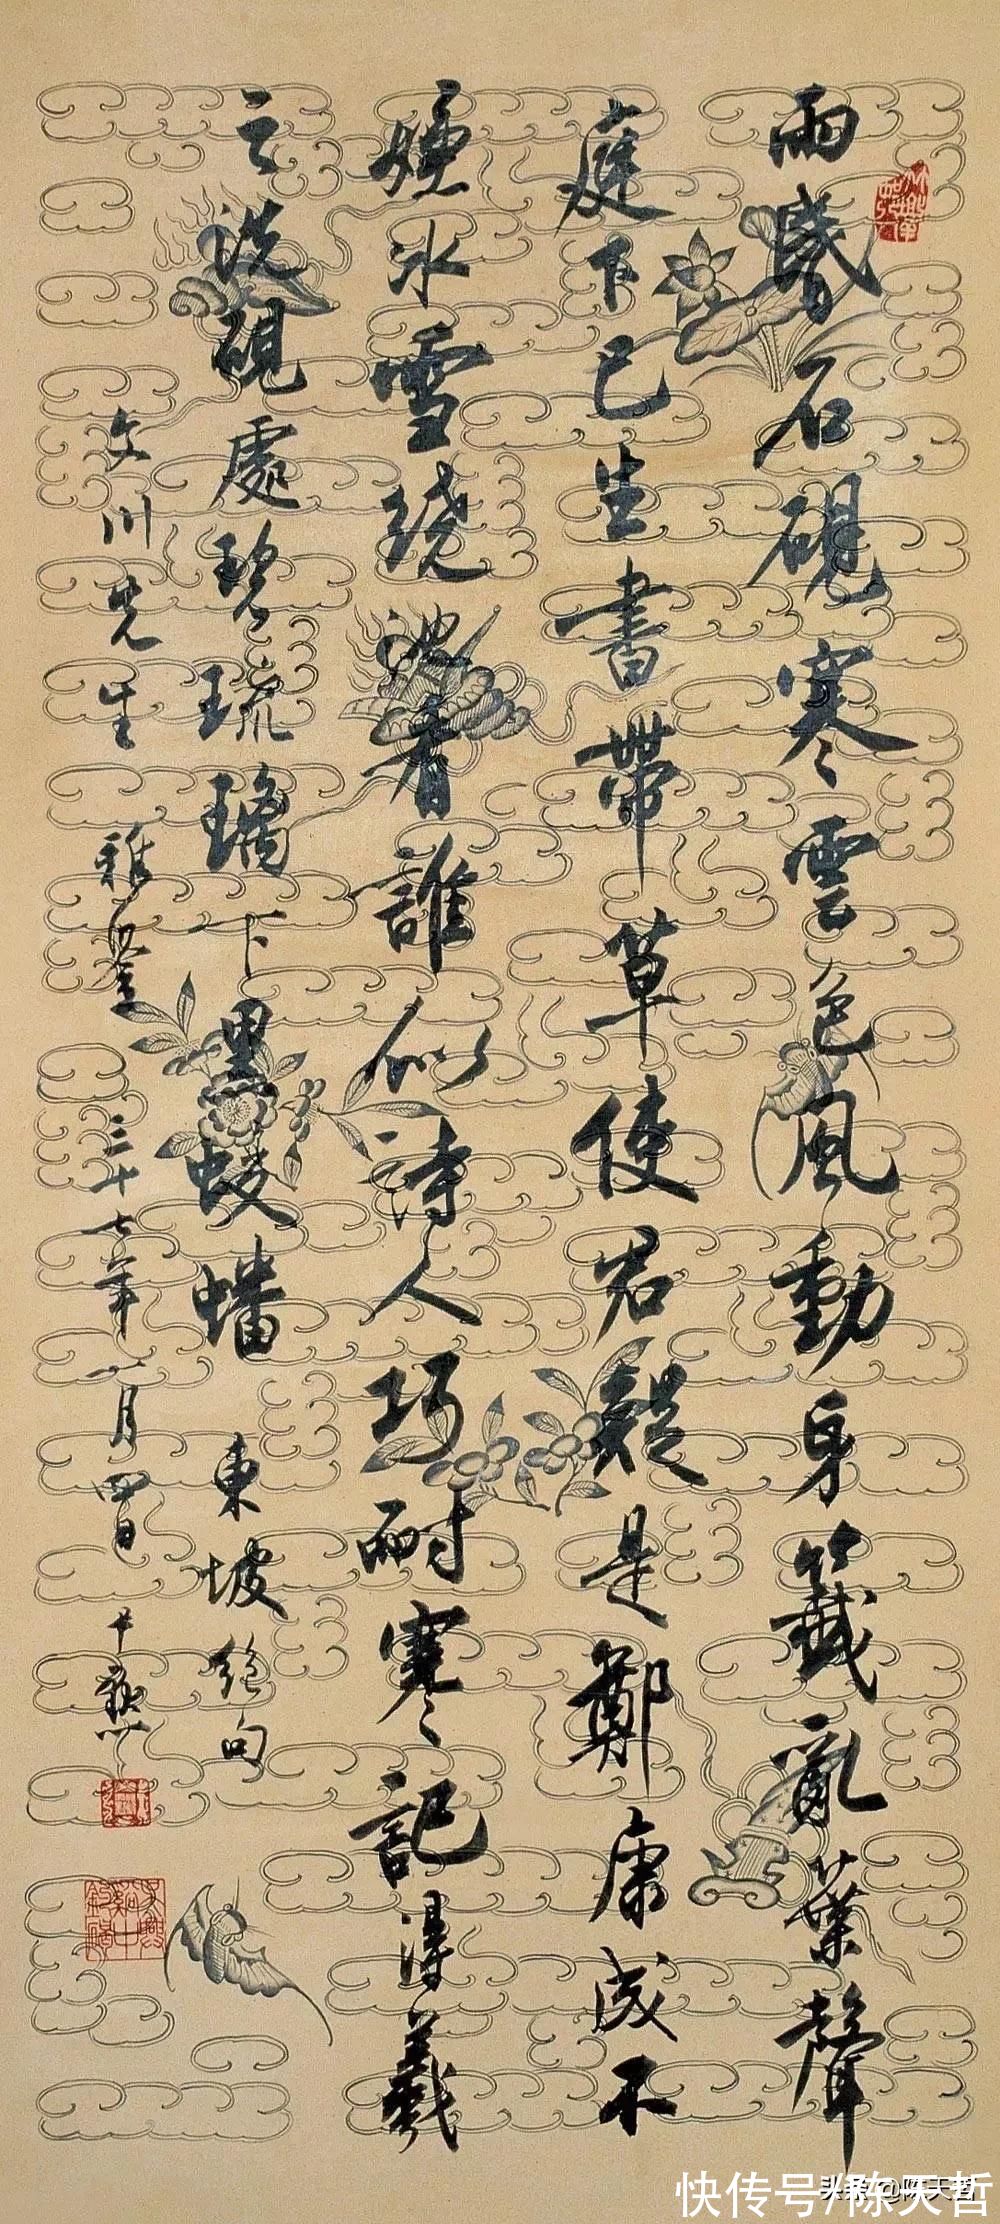 雨昏石硯寒雲色風動牙籤亂葉聲
庭下已生書帶草使君疑是鄭康成不
嫌冰雪繞池看誰似詩人巧耐寒記得羲
之洗硯處碧琉璃下黑蛟蟠 東坡絕句
文川先生雅鑒 三十七年一月四日 尹默
头条 @陈天哲
快传号/陈天哲